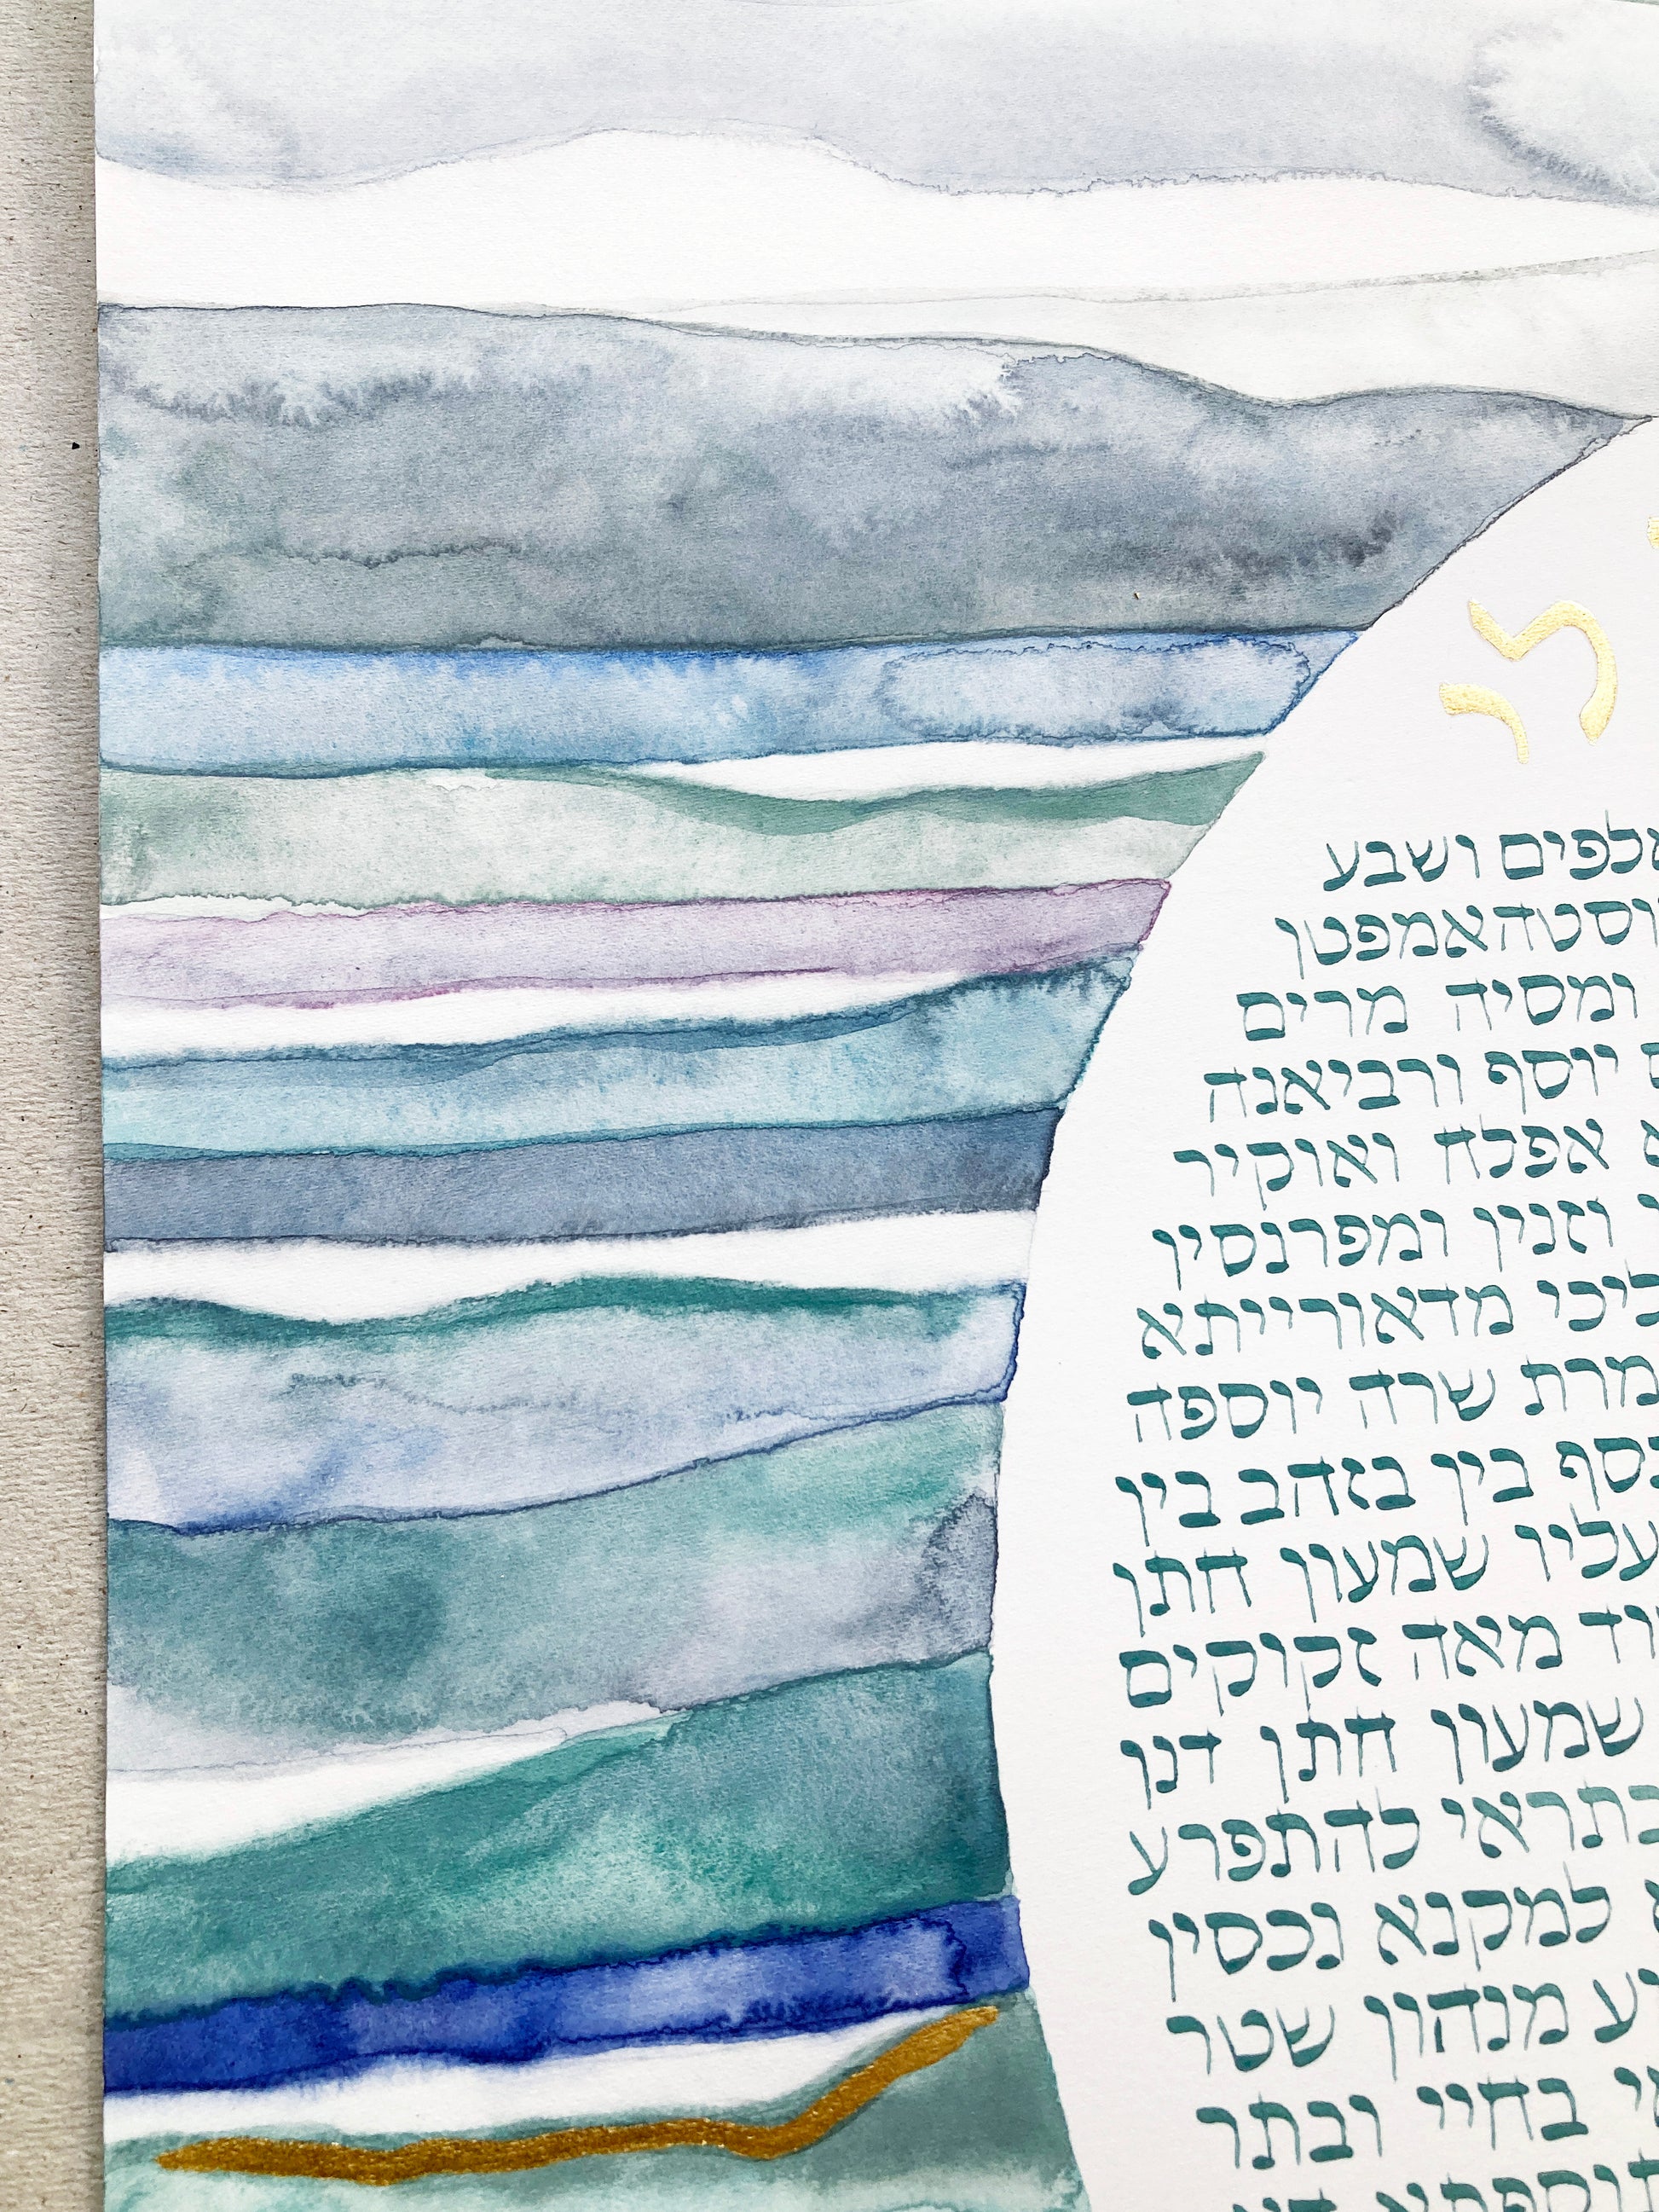 לי
אלפים ושבע
וסטהאמפטן
ומסיה מרים
יוסף ורביאנה
אפלח ואוקיר
וזנין ומפרנסין
ליכי מדאורייתא
מרת שרה יוספה
כסף בין בזהב בין
עליו שמעון חתן
וד מאה זקוקים
שמעון חתן דנן
בתראי להתפרע
למקנא נכסין
מנהון שטר
בחיי ובתר